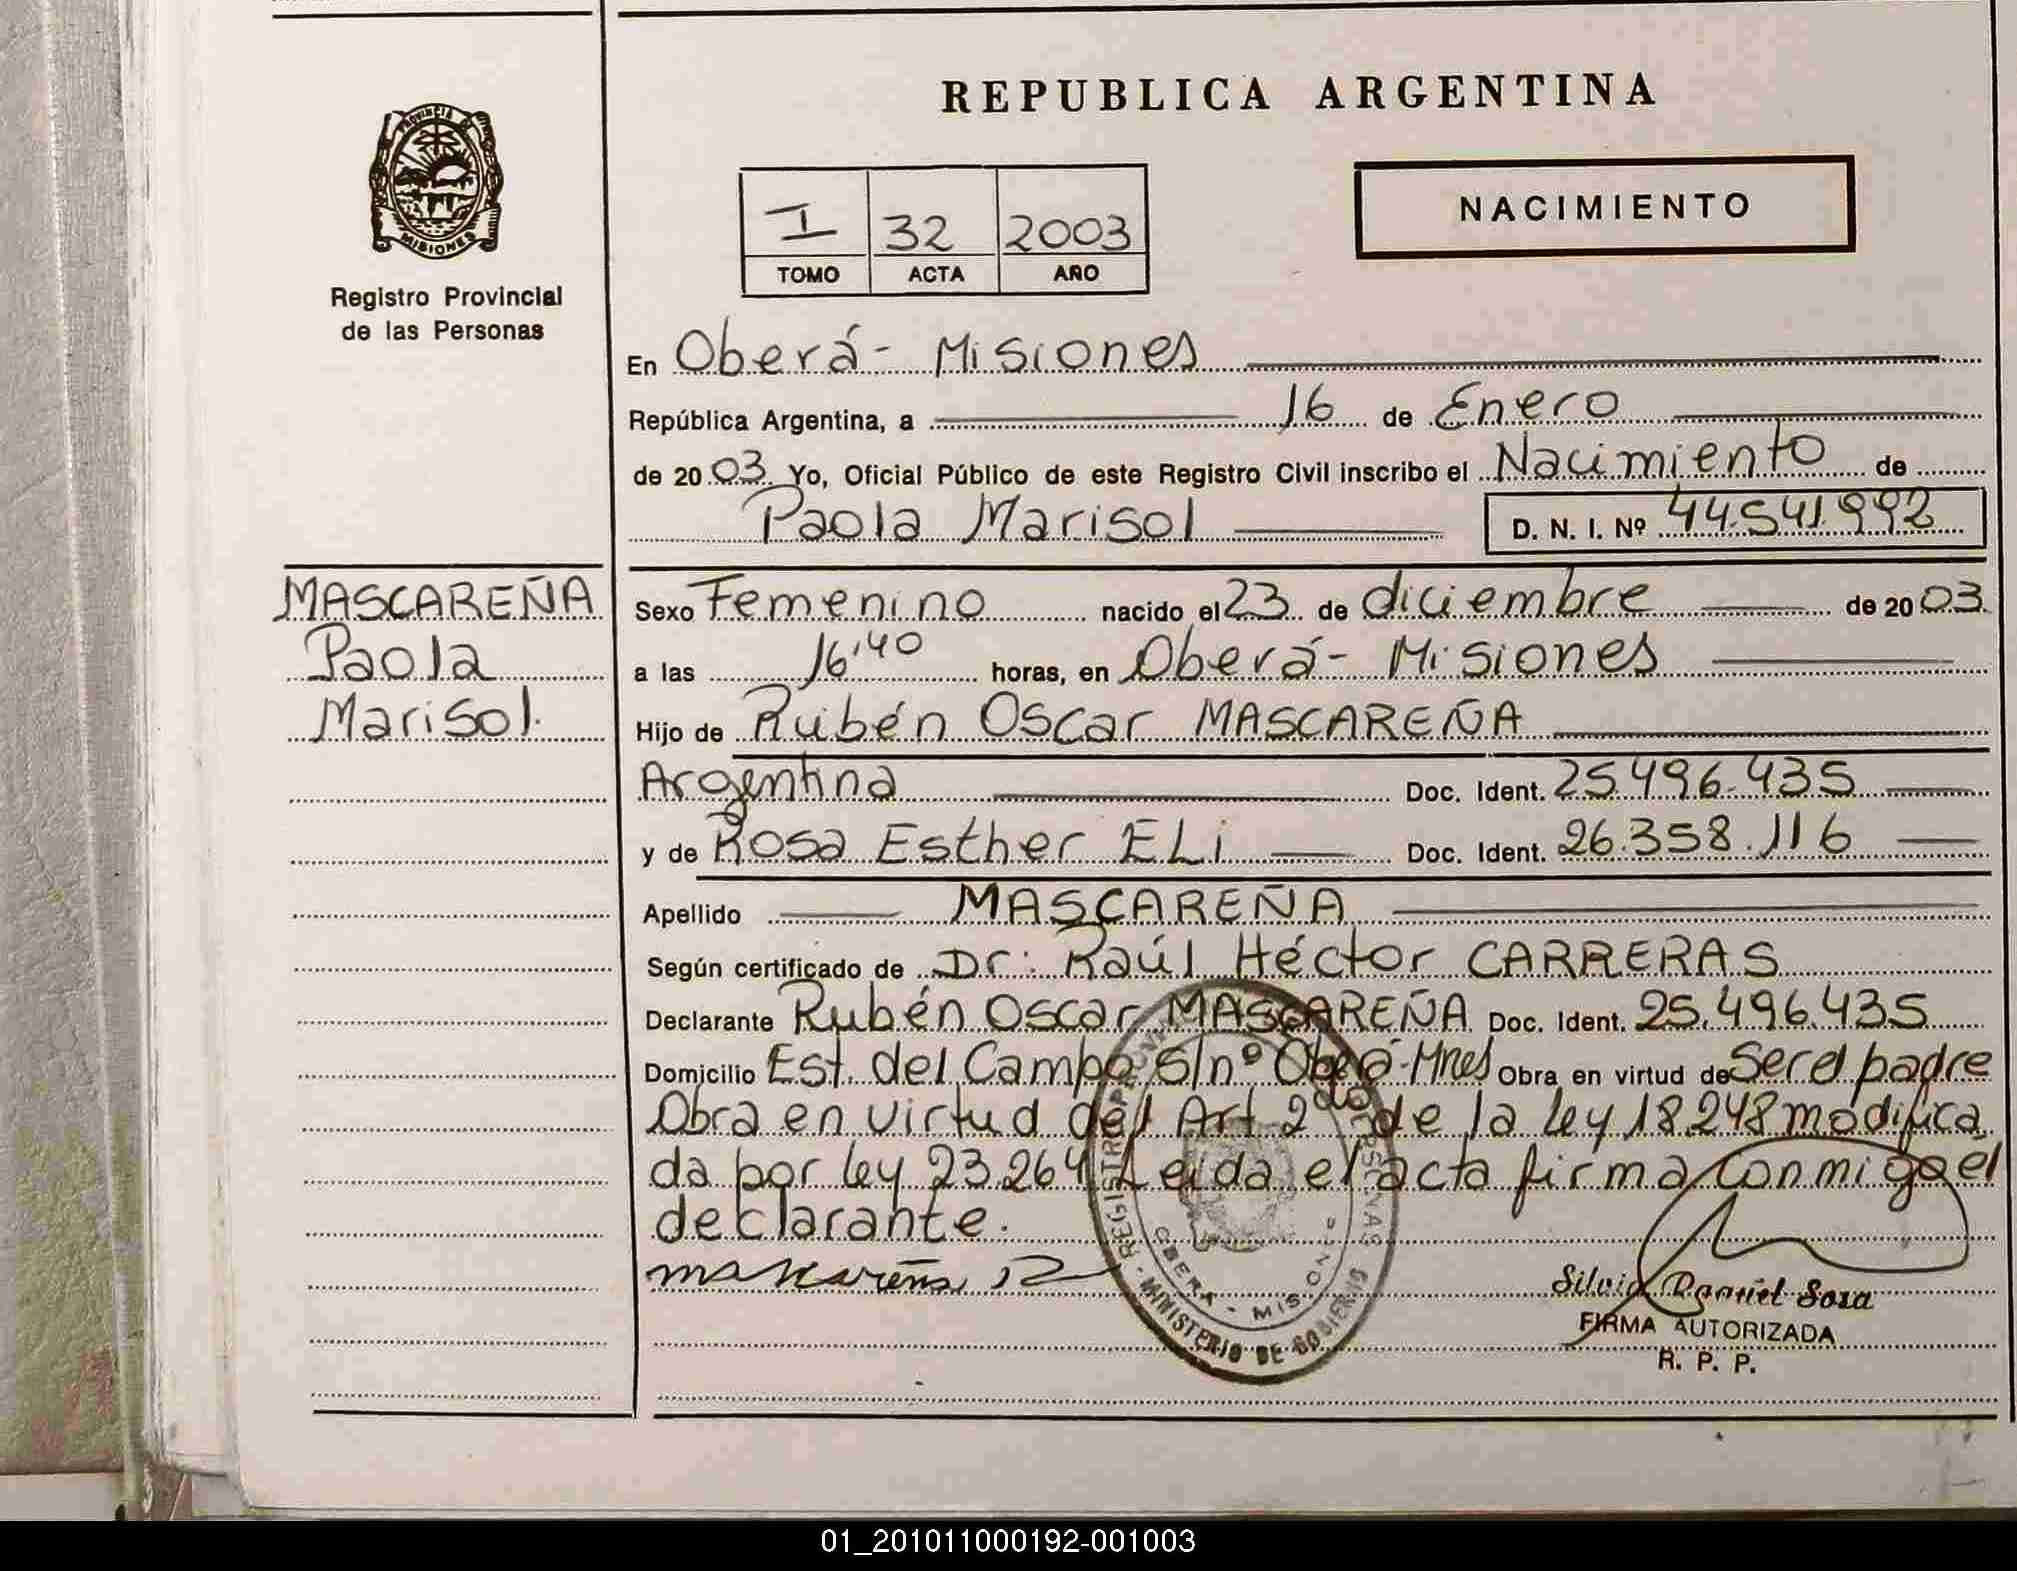 REPUBLICA ARGENTINA
PROVINCIA DE
MISIONES
Registro Provincial
de las Personas
I 32 2003
TOMO ACTA AÑO
NACIMIENTO
En Oberá - Misiones
República Argentina, a 16 de Enero
de 2003 Yo, Oficial Público de este Registro Civil inscribo el Nacimiento de
Paola Marisol D. N. I. Nº 44.541.992
MASCAREÑA
Paola
Marisol.
Sexo Femenino nacido el 23 de diciembre de 2003
a las 16'40 horas, en Oberá - Misiones
Hijo de Rubén Oscar MASCAREÑA
Argentina Doc. Ident. 25.496.435
y de Rosa Esther ELi Doc. Ident. 26.358.116
Apellido MASCAREÑA
Según certificado de Dr: Raúl Héctor CARRERAS
Declarante Rubén Oscar MASCAREÑA Doc. Ident. 25.496.435
Domicilio Est. del Campo S/nº Oberá-Mnes Obra en virtud de Ser el padre
Obra en virtud del Art 2do de la ley 18.248 modifica
da por ley 23.264 Leida el acta firma conmigo el
declarante.
Mascareña R
REGISTRO PROVINCIAL PERSONAS - MINISTERIO DE GOBIERNO
OBERA - MISIONES
Silvio Daniel Sosa
FIRMA AUTORIZADA
R. P. P.
01_201011000192-001003